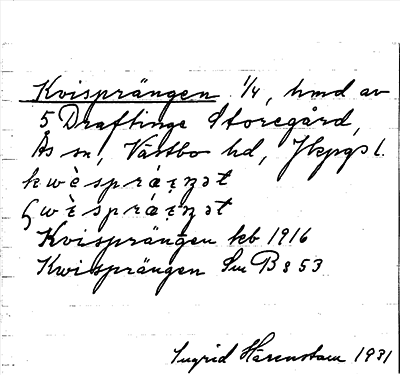 Kvisprängen 1/4, hmd av
5 Draftinge Storegård,
Ås sn, Västbo hd, Jkpgs l.
kwèspráẹŋət
ʕwèspráẹŋət
Kvisprängen kb 1916
Kwisprängen Sm B 8 53
Ingrid Härenstam 1931